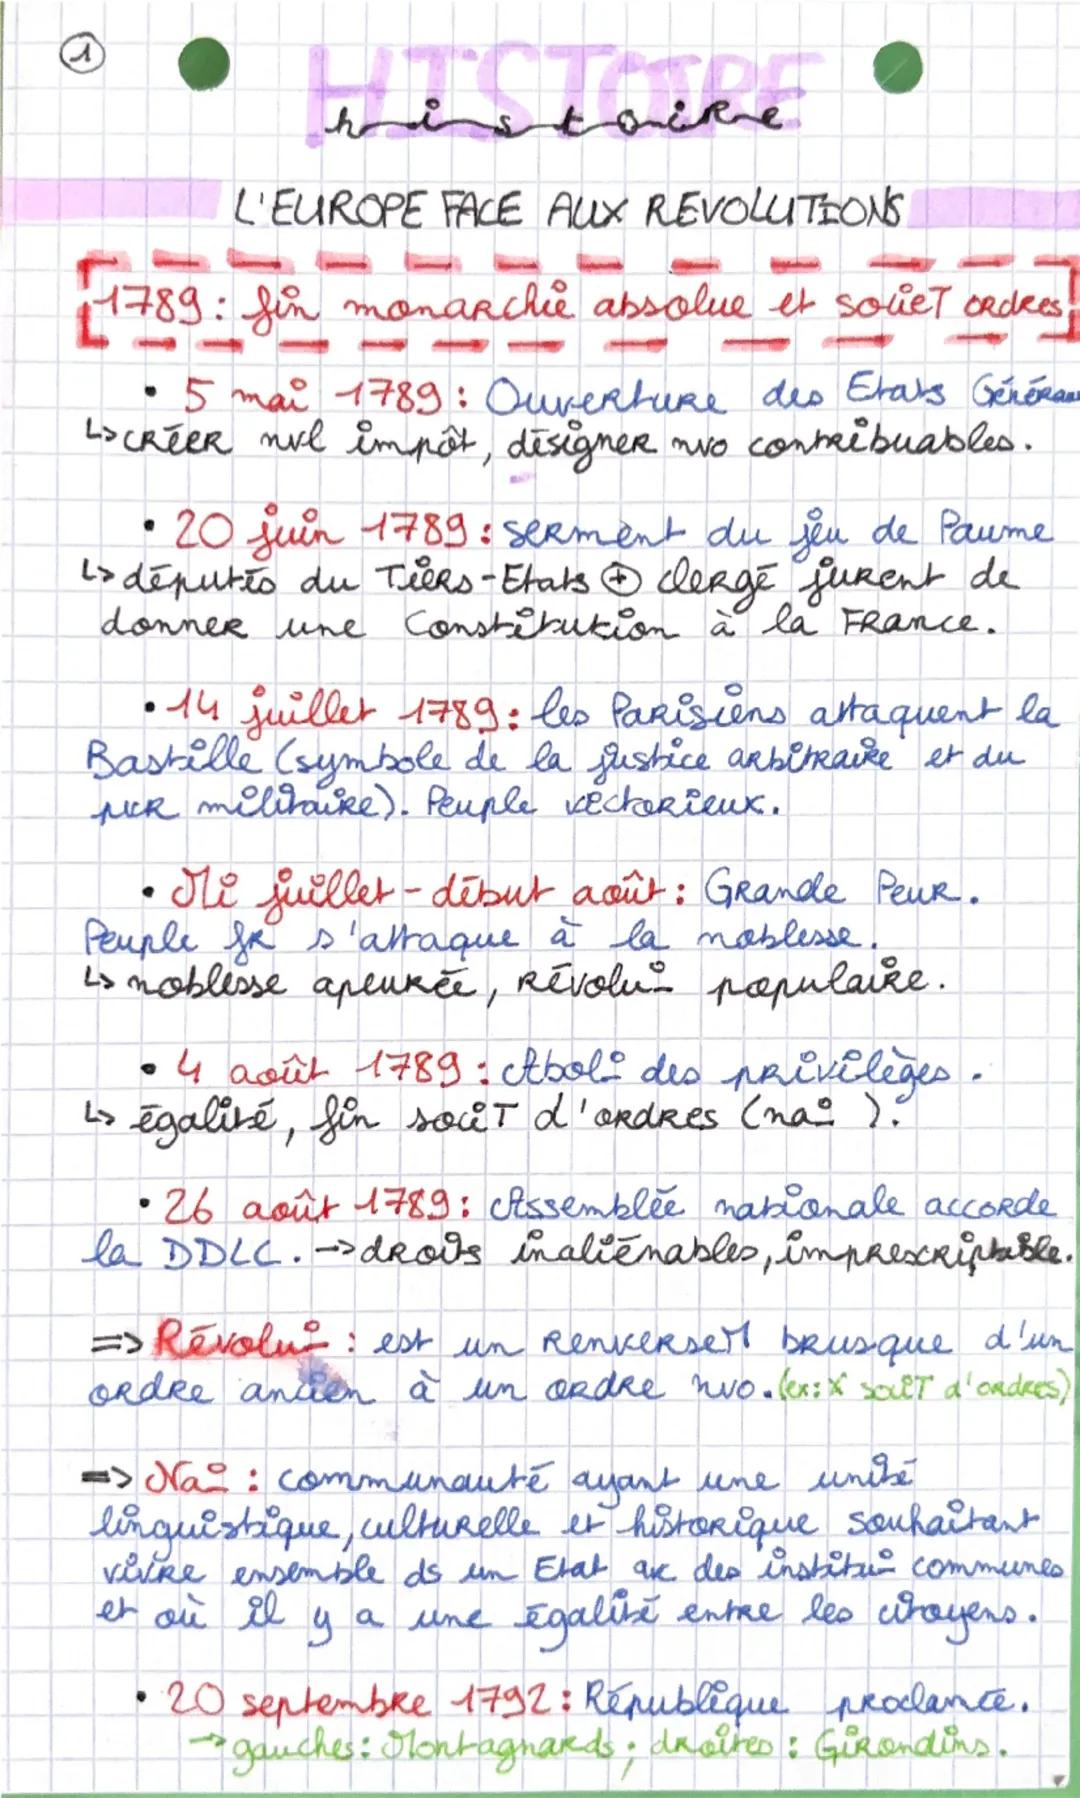 1
HISTOIRE
histoire
L'EUROPE FACE AUX REVOLUTIONS
1789 : fin monarchie absolue et socieT ordres
• 5 mai 1789 : Ouverture des Etats Généraux
↳ créer nvl impôt, désigner nvo contribuables.
• 20 juin 1789 : serment du jeu de Paume
↳ députés du Tiers-Etats ⊕ clergé jurent de
donner une Constitution à la France.
• 14 juillet 1789 : les Parisiens attaquent la
Bastille (symbole de la justice arbitraire et du
pvr militaire). Peuple victorieux.
• Mi juillet - début août : Grande Peur.
Peuple fr s'attaque à la noblesse.
↳ noblesse apeurée, révolu° populaire.
• 4 août 1789 : Aboli° des privilèges.
↳ égalité, fin sociT d'ordres (nai° ).
• 26 août 1789 : Assemblée nationale accorde
la DDLC. → droits inaliénables, imprescriptible.
=> Révolu° : est un renverseMT brusque d'un
ordre ancien à un ordre nvo. (ex: X sociéT d'ordres)
=> Na° : communauté ayant une unité
linguistique, culturelle et historique souhaitant
vivre ensemble ds un Etat av des institu° communes
et où il y a une égalité entre les citoyens.
• 20 septembre 1792 : République proclamée.
→ gauches : Montagnards ; droites : Girondins.